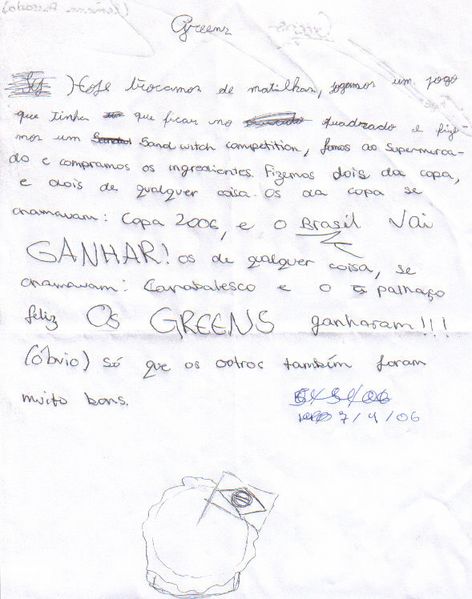 Greens
Hoje trocamos de matilhas, jogamos um jogo
que tinha que ficar no quadrado e fize
mos um Sand witch competition, fomos ao Supermerca-
do e compramos os ingredientes. Fizemos dois da copa,
e dois de qualquer coisa. Os da copa se
chamavam: Copa 2006, e o Brasil Vai
GANHAR! os de qualquer coisa, se
chamavam: Carnavalesco e o palhaço
feliz Os GREENS ganharam!!!
(óbvio) só que os outros também foram
muito bons.
7/4/06